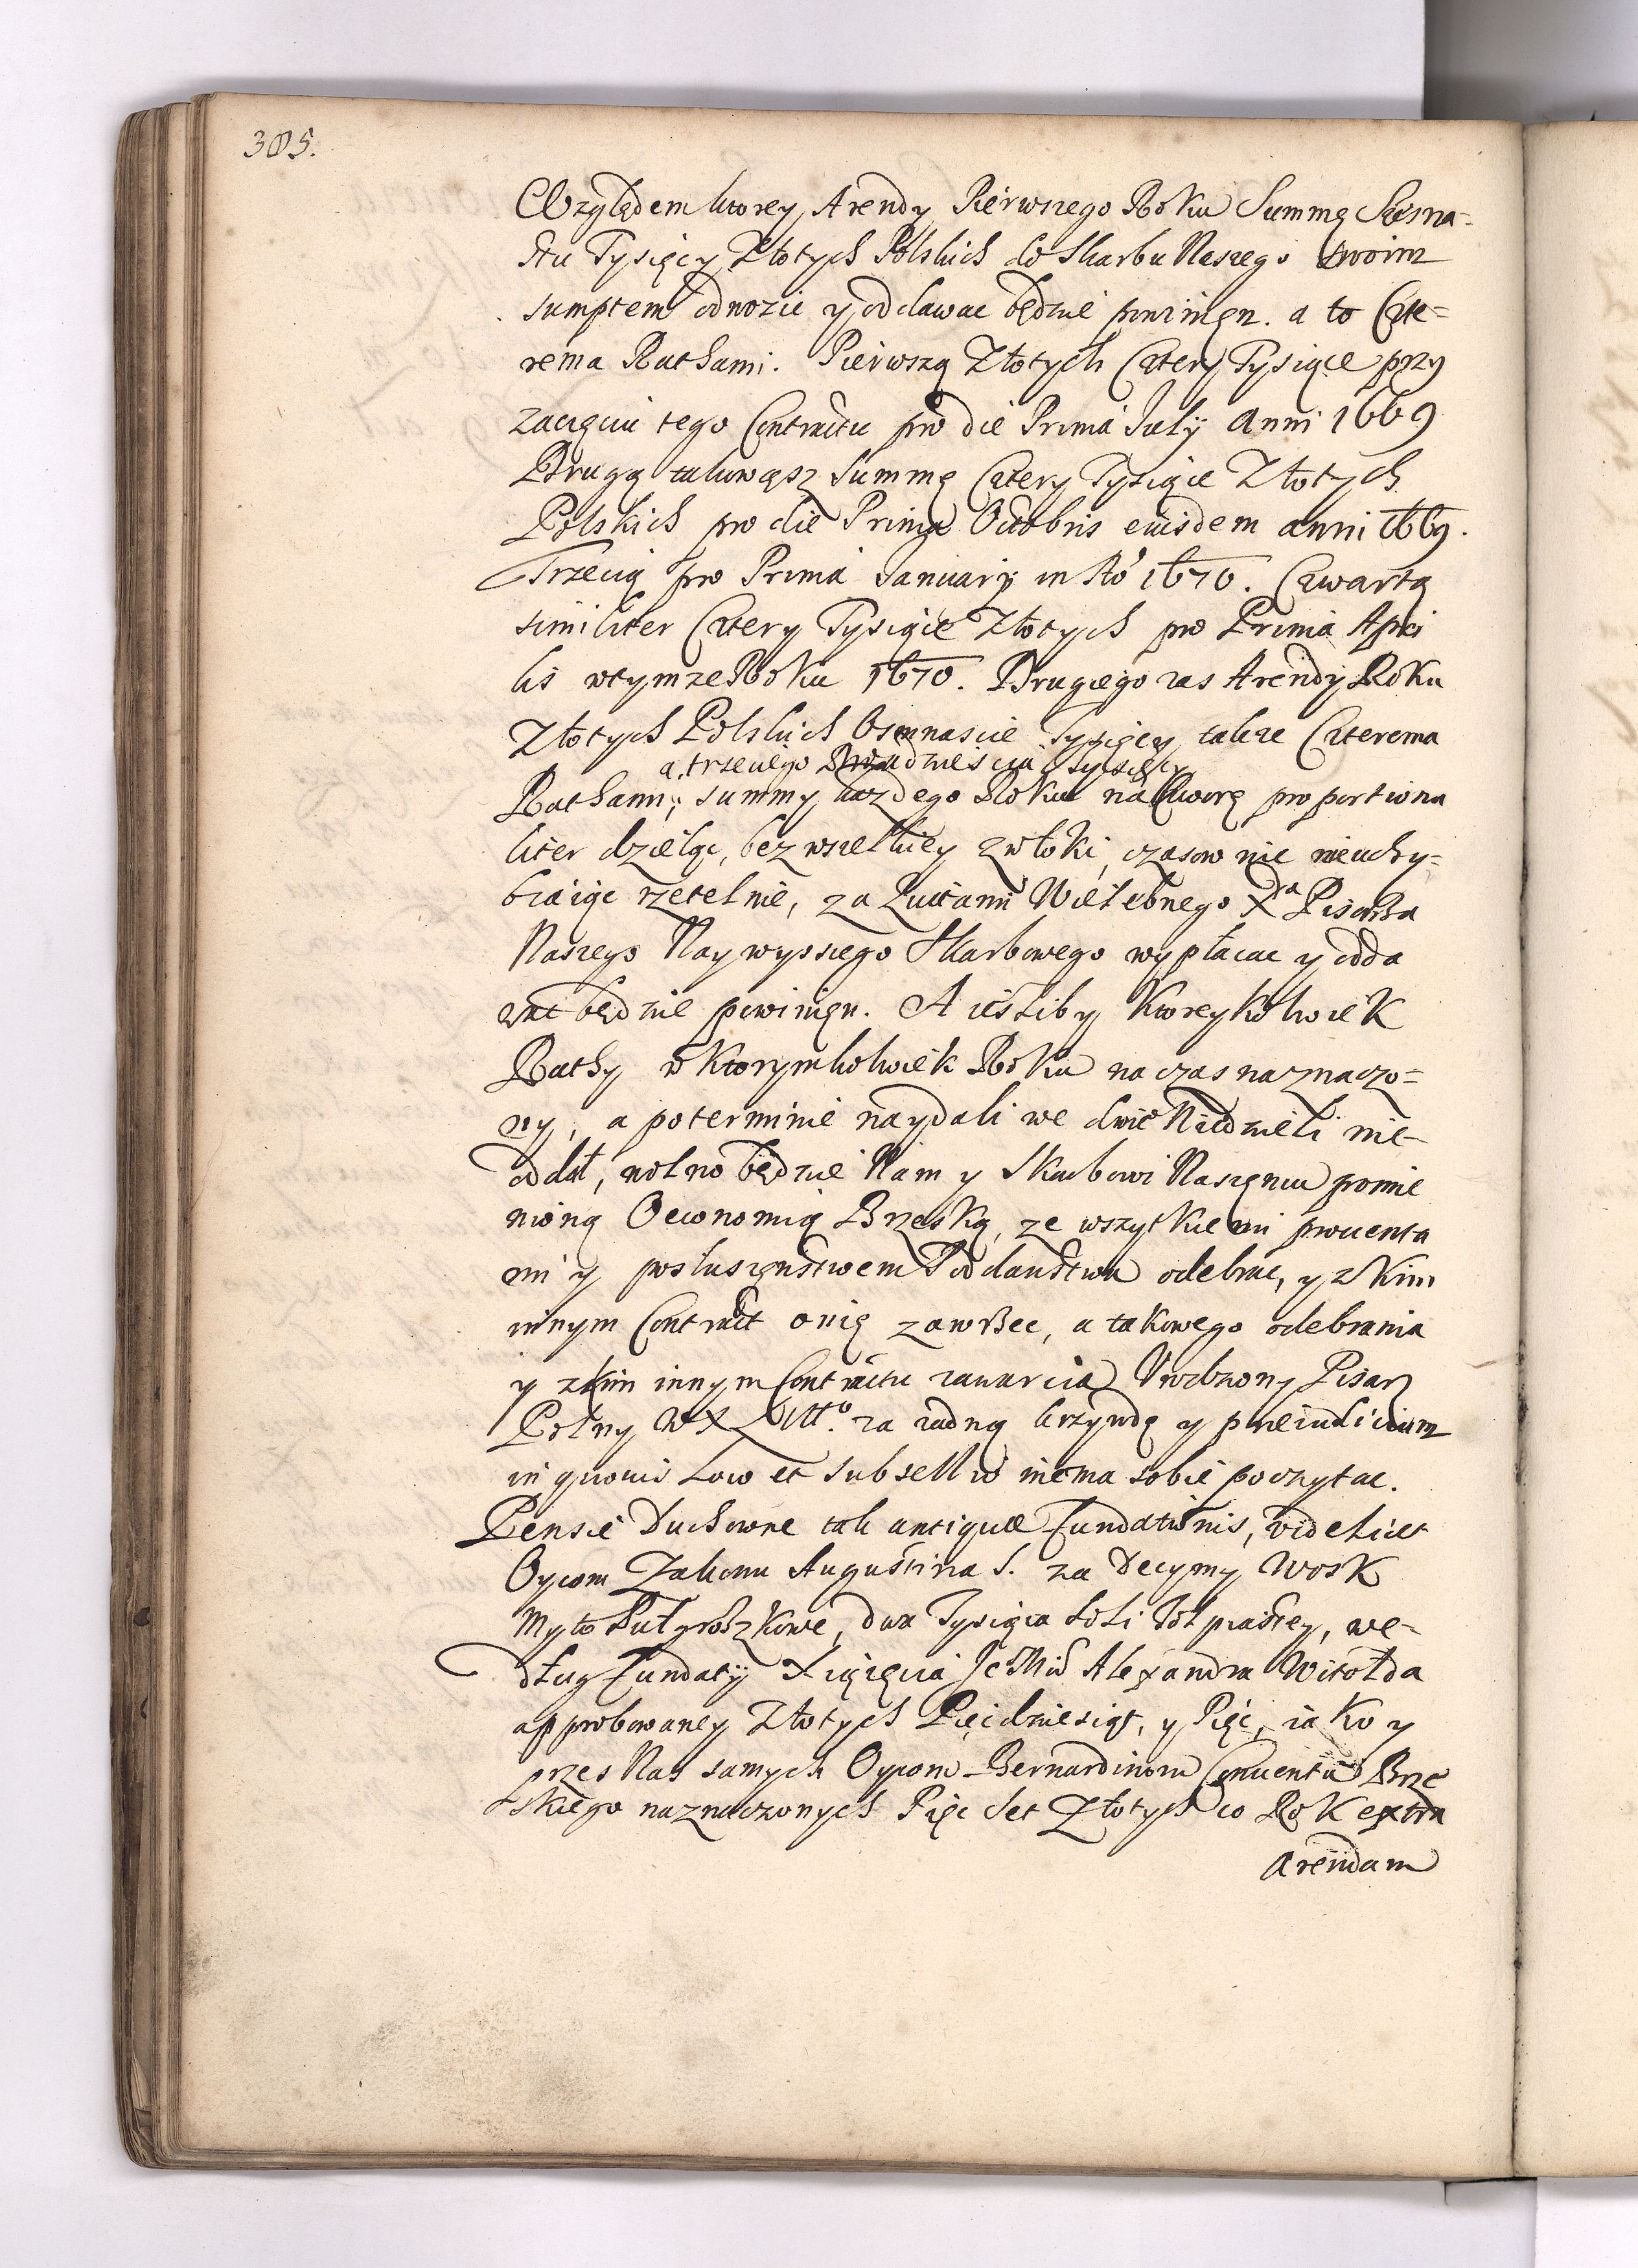 305.
Względem ktorey Arendy Pierwszego Roku Summę Szesna=
stu Tysięcy Złotych Polskich do Skarbu Naszego swoim
sumptem odnozic y oddawac będzie powinięn. a to Czte=
rema Rathami. Pierwszą Złotych Cztery Tysiące przy
zacięciu tego Contractu pro die Prima July Anni 1669
Drugą takowąsz Summę Cztery Tysiące Złotych
Polskich pro die Prima Octobris eiusdem anni 1669.
Trzecią pro Prima January in Ro 1670. Czwartą
similiter Cztery Tysiące Złotych pro Prima Apri
lis wtymze Roku 1670. Drugiego zas Arendy Roku
Złotych Polskich Osmnascie Tysięcy, takze Czterema
a trzeciego Dwadziescia Tysięcy
Rathami; summy kazdego Roku na Cztery proportiona
liter dzieląc, bez wszelkiey zwłoki, czasow nie nieuchy=
biaiąc rzetelnie, za Quitami Wielebnego Xa Pisarza
Naszego Naywyszego Skarbowego wypłacac y odda
wac będzie powinięn. A iesliby Ktoreykolwiek
Rathy w Ktorymkolwiek Roku na czas naznaczo=
ny, a poterminie naydali we dwie Niedzieli nie-
oddał, wolno będzie Nam y Skarbowi Naszęmu pomie
nioną Oeconomią Brzeską, ze wszytkiemi prouenta
mi y posłuszęnstwem Poddanstwa odebrac, y z Kim
innym Contract onię zawrzec, a takowego odebrania
y zkim innym Contractu zawarcia Vrodzony Pisarz
Polny WXLitto. za zadną krzywdę y preiudicium
in quouis Loco et Subsellio niema sobie poczytac.
Pensie Duchowne tak antiquæ Fundationis, videlicet
Oycom Zakonu Augustina S. za Decymy Wosk
Myto Pułgroszkowe, dwa Tysiąca Soli Tołpiastey, we-
dług Fundatÿ Xiązęcia Je Mci Alexandra Witołda
approbowaney Złotych Pięcdziesiąt, y Pięc, iako y
przes Nas samych Oycom Bernardinom Conuentu Brze
skiego naznaczonych Pięc Set Złotych co Rok extra
Arendam